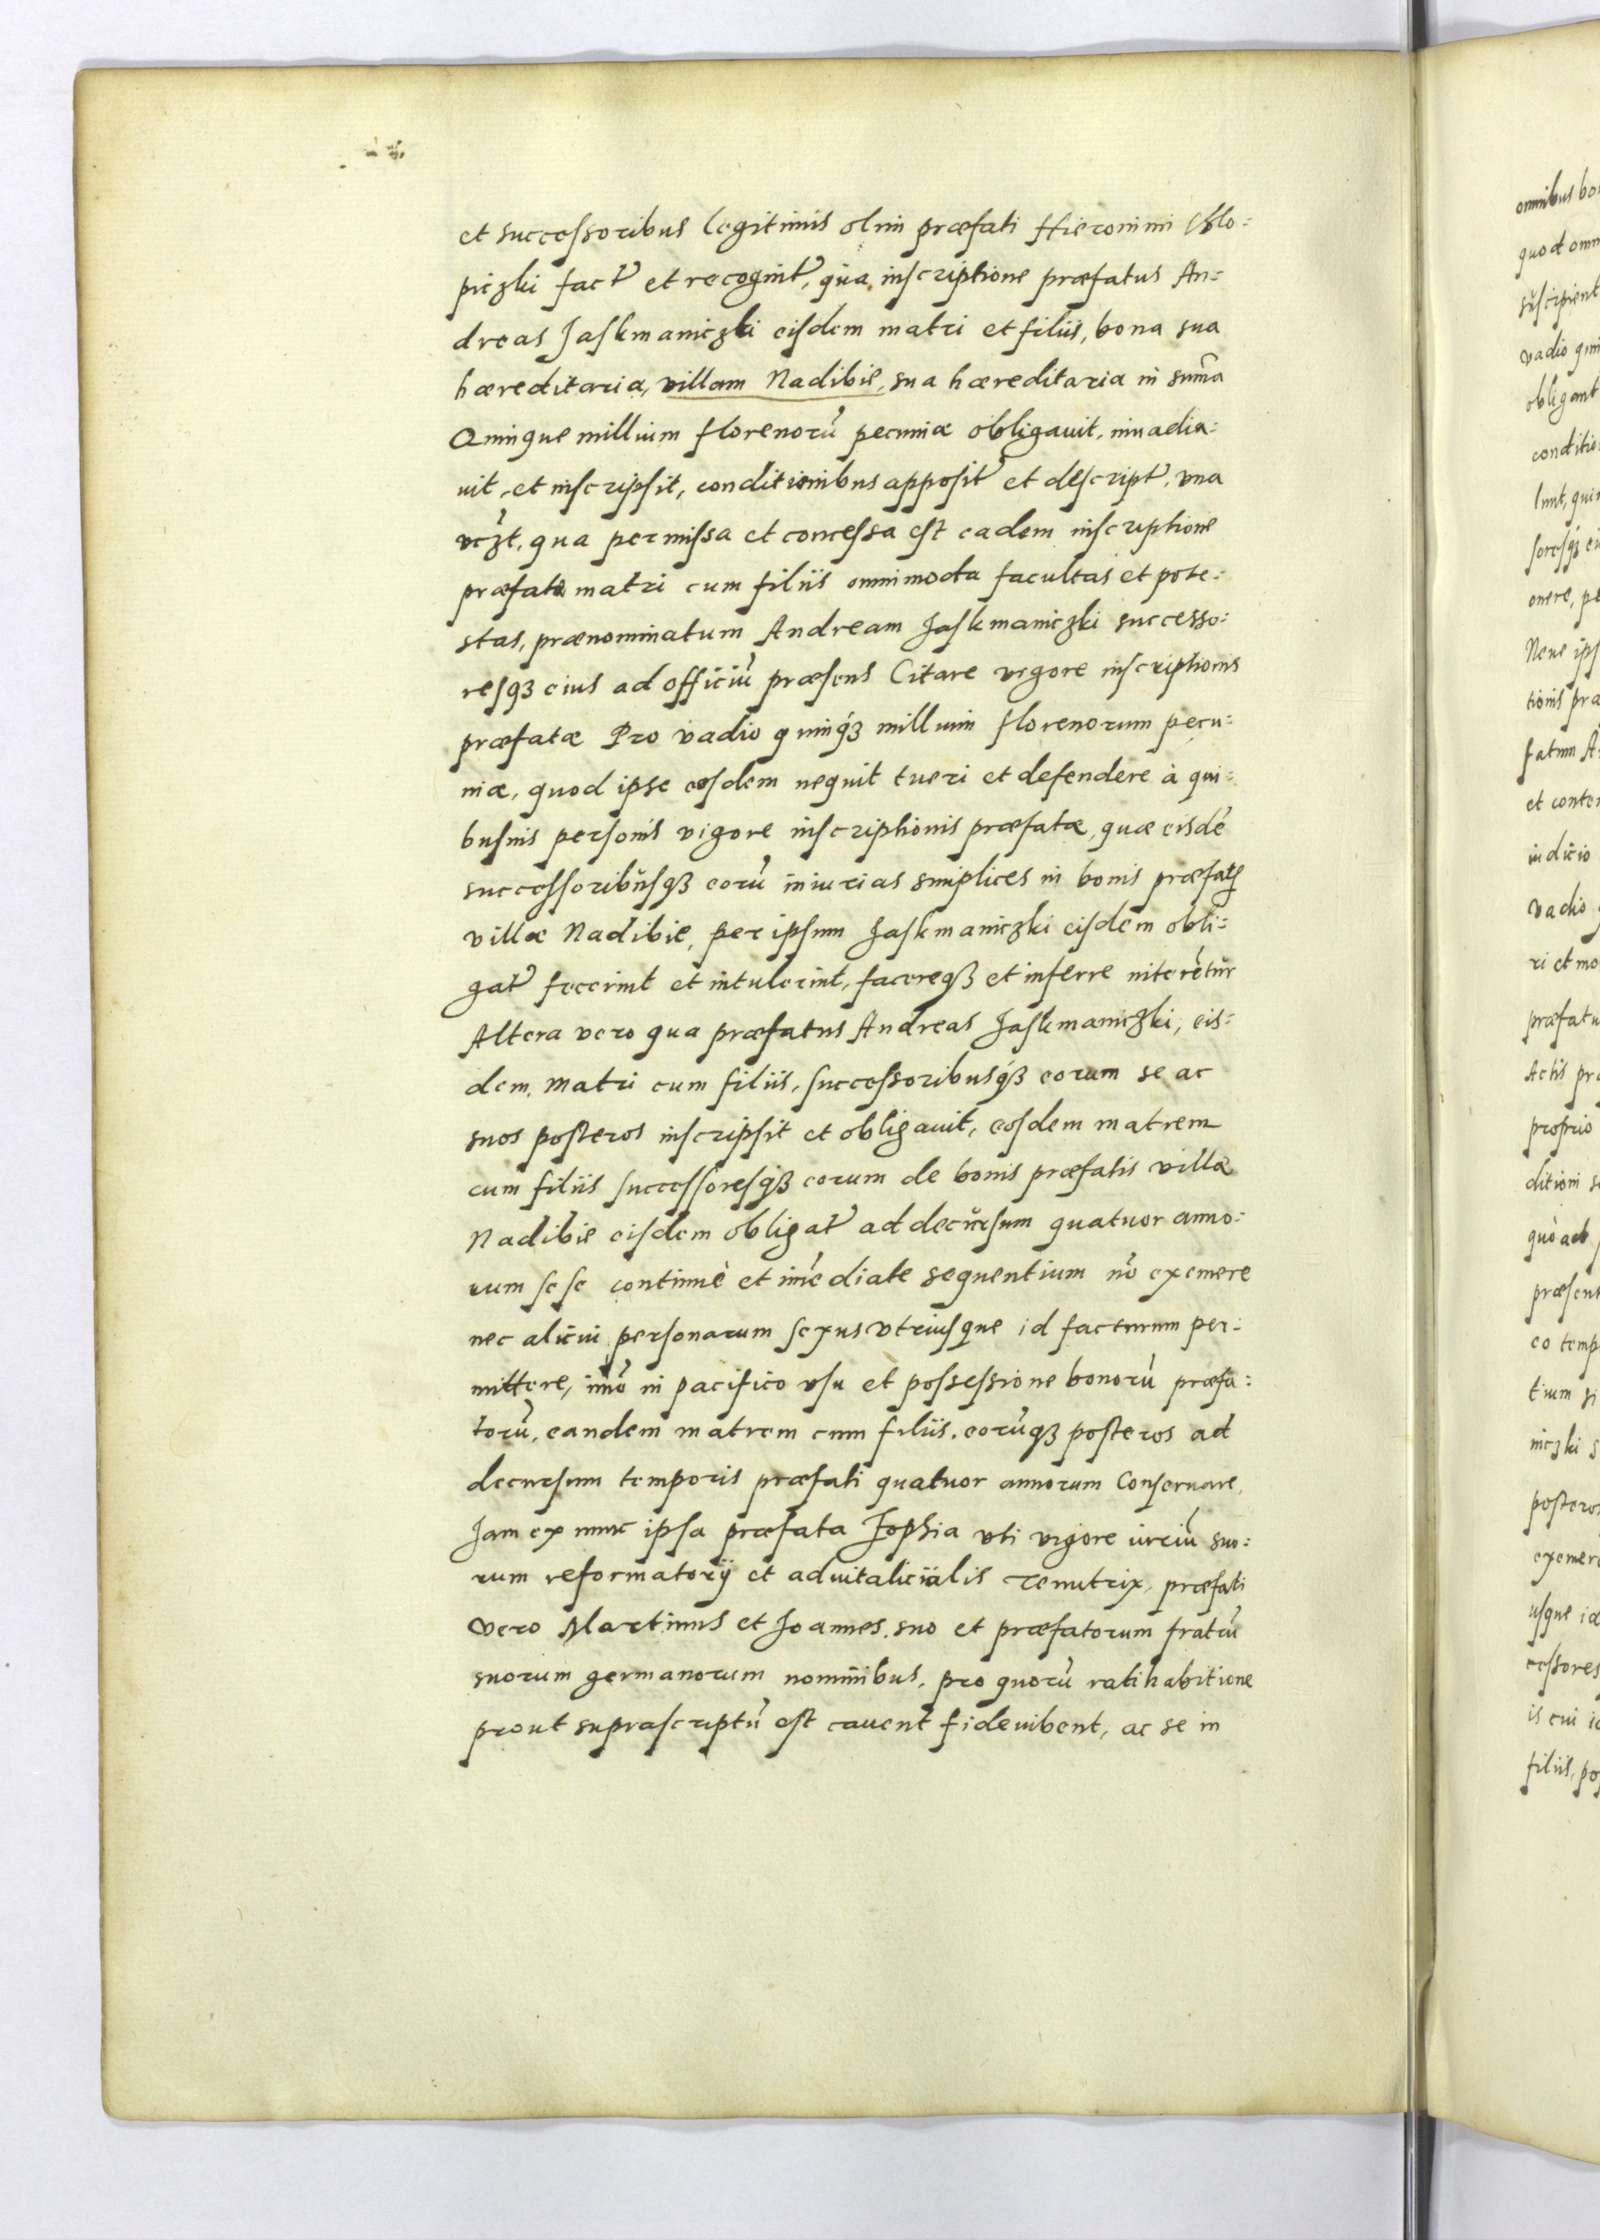 et successoribus legitimis olim præfati Hieronimi Chlo:
piczki fact̃ et recognit̃, qua inscriptione præfatus An:
dreas Jaskmaniczki eisdem matri et filiis, bona sua
hæreditaria, villam Nadibie, sua hæreditaria in sum̃a
Quinque millium florenorũ pecuniæ obligauit, inuadia:
uit, et inscripsit, conditionibus apposit̃ et descript̃, vna
vczt, qua permissa et concessa est eadem inscriptione
præfatæ matri cum filiis omnimoda facultas et pote:
stas, prænominatum Andream Jaskmaniczki successo:
resqꝫ eius ad officiũ præsens Citare vigore inscriptionis
præfatæ Pro vadio quinqꝫ millium florenorum pecu:
niæ, quod ipse eosdem nequit tueri et defendere à qui:
busuis personis vigore inscriptionis præfatæ, quæ eisdẽ
successoribusqꝫ eorũ iniurias simplices in bonis præfatę
villæ Nadibie, per ipsum Jaskmaniczki eisdem obli:
gat̃ fecerint et intulerint, facereqꝫ et inferre niterẽtur
Altera vero qua præfatus Andreas Jaskmaniczki, eis:
dem, matri cum filiis, successoribusqꝫ eorum se ac
suos posteros inscripsit et obligauit, eosdem matrem
cum filiis successoresqꝫ eorum de bonis præfatis villæ
Nadibie eisdem obligat̃ ad decursum quatuor anno:
rum sese continuè et im̃ediate sequentium nõ exemere
nec alicui personarum sexus vtriusque id facturum per:
mittere, im̃o in pacifico vsu et possessione bonorũ præfa:
torũ, eandem matrem cum filiis, eorũqꝫ posteros ad
decursum temporis præfati quatuor annorum Conseruare,
Jam ex nunc ipsa præfata Zophia vti vigore iuriũ suo:
rum reformatorÿ et aduitalicialis tenutrix, præfati
vero Martinus et Joannes, suo et præfatorum fratrũ
suorum germanorum nominibus, pro quorũ ratihabitione
prout suprascriptũ est cauent fideiubent, ac se in
omnibus bo
quod omn
suscipient
vadio qui
obligant
conditio
lint, qui
onere, pe
Neue ips
tionis præ
fatum A
et conte
iudicio
vadio
ri et mo
præfatu
Actis pr
proprio
ditioni s
præsent
eo temp
tium si
niczki s
posteros
exemere
usque id
cessores
is cui i
filiis, po